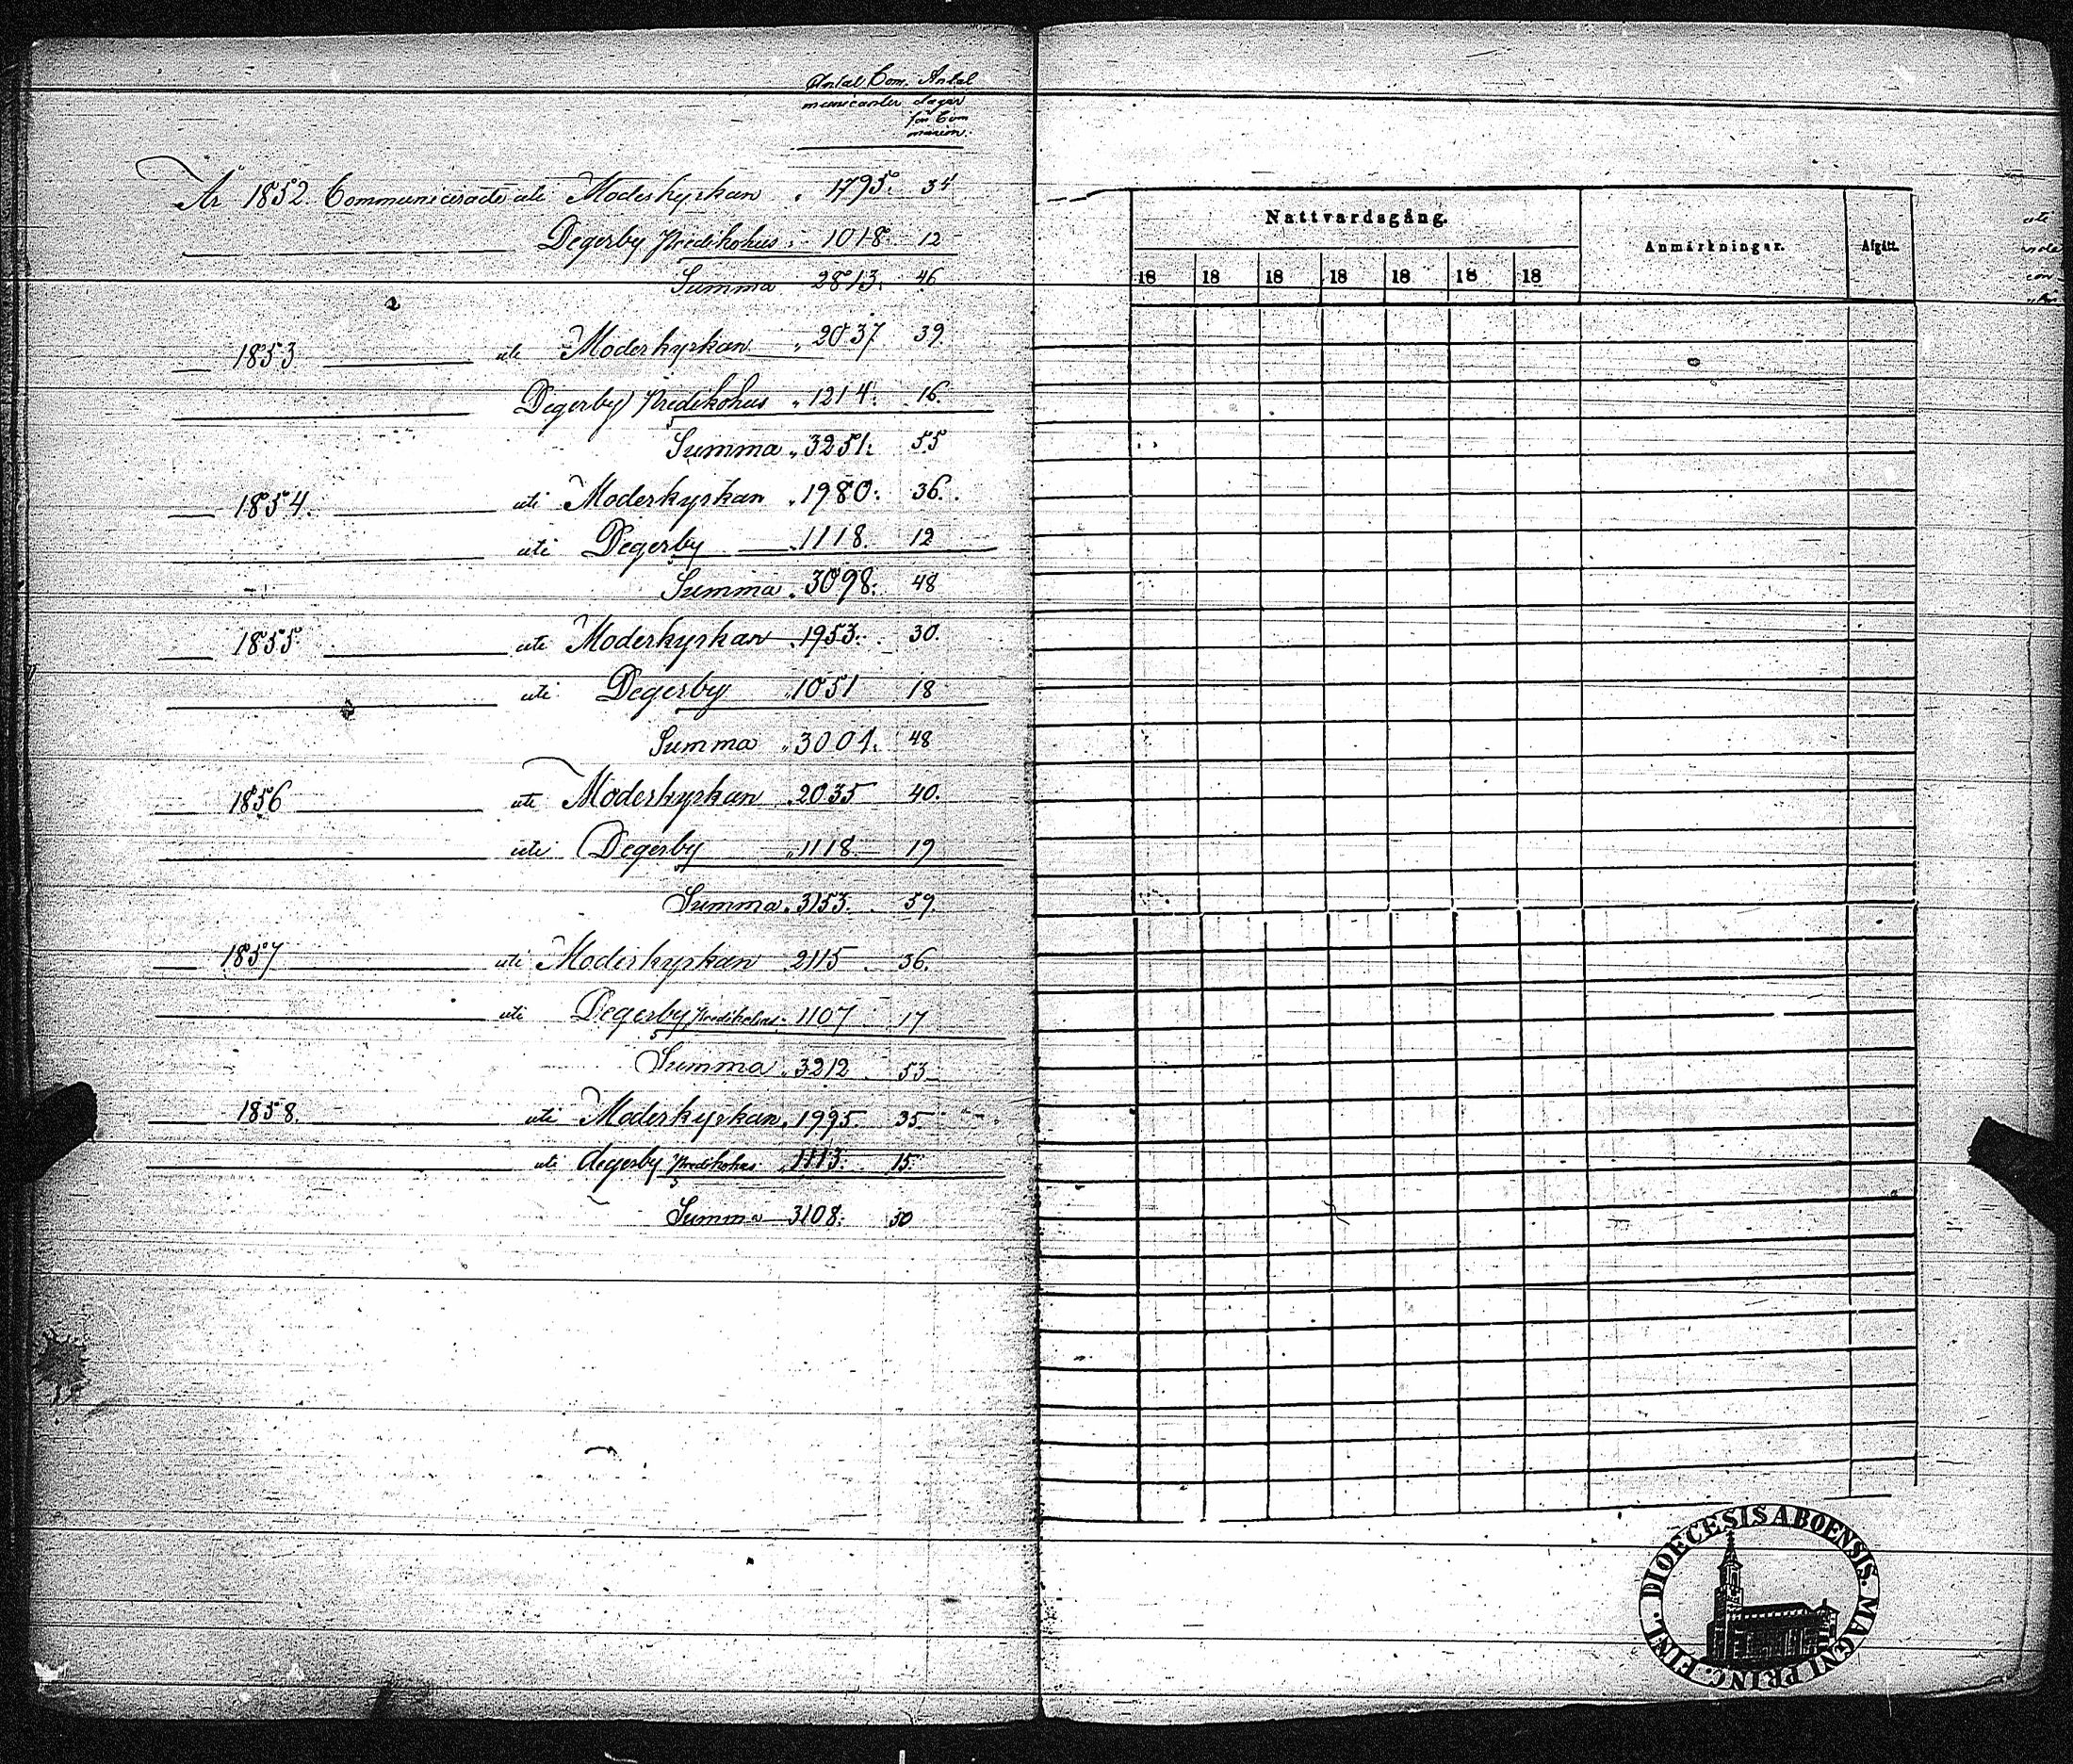 Antal Com- Antal
municanter dagar
för Com
munion.
År 1852 Communicerade uti Moderkyrkan 1795. 34
Degerby Predikohus 1018. 12
Summa 2813. 46
1853 uti Moderkyrkan 2037 39.
Degerby Predikohus 1214. 16.
Summa 3251. 55
1854. uti Moderkyrkan 1980. 36.
uti Degerby 1118. 12
Summa 3098. 48
1855. uti Moderkyrkan 1953. 30.
uti Degerby 1051 18
Summa 3001. 48
1856 uti Moderkyrkan 2035 40.
uti Degerby 1118. 19
Summa 3153. 59.
1857 uti Moderkyrkan 2115 36.
uti Degerby Predikohus 1107 17
Summa 3212 53
1858. uti Moderkyrkan 1995. 35
uti degerby Predikohus 1113. 15
Summa 3108. 50
Nattvardsgång. Anmärkningar. Afgått.
18 18 18 18 18 18 18
DIOECESIS ABOENSIS. MAGNI PRINC. FINL.